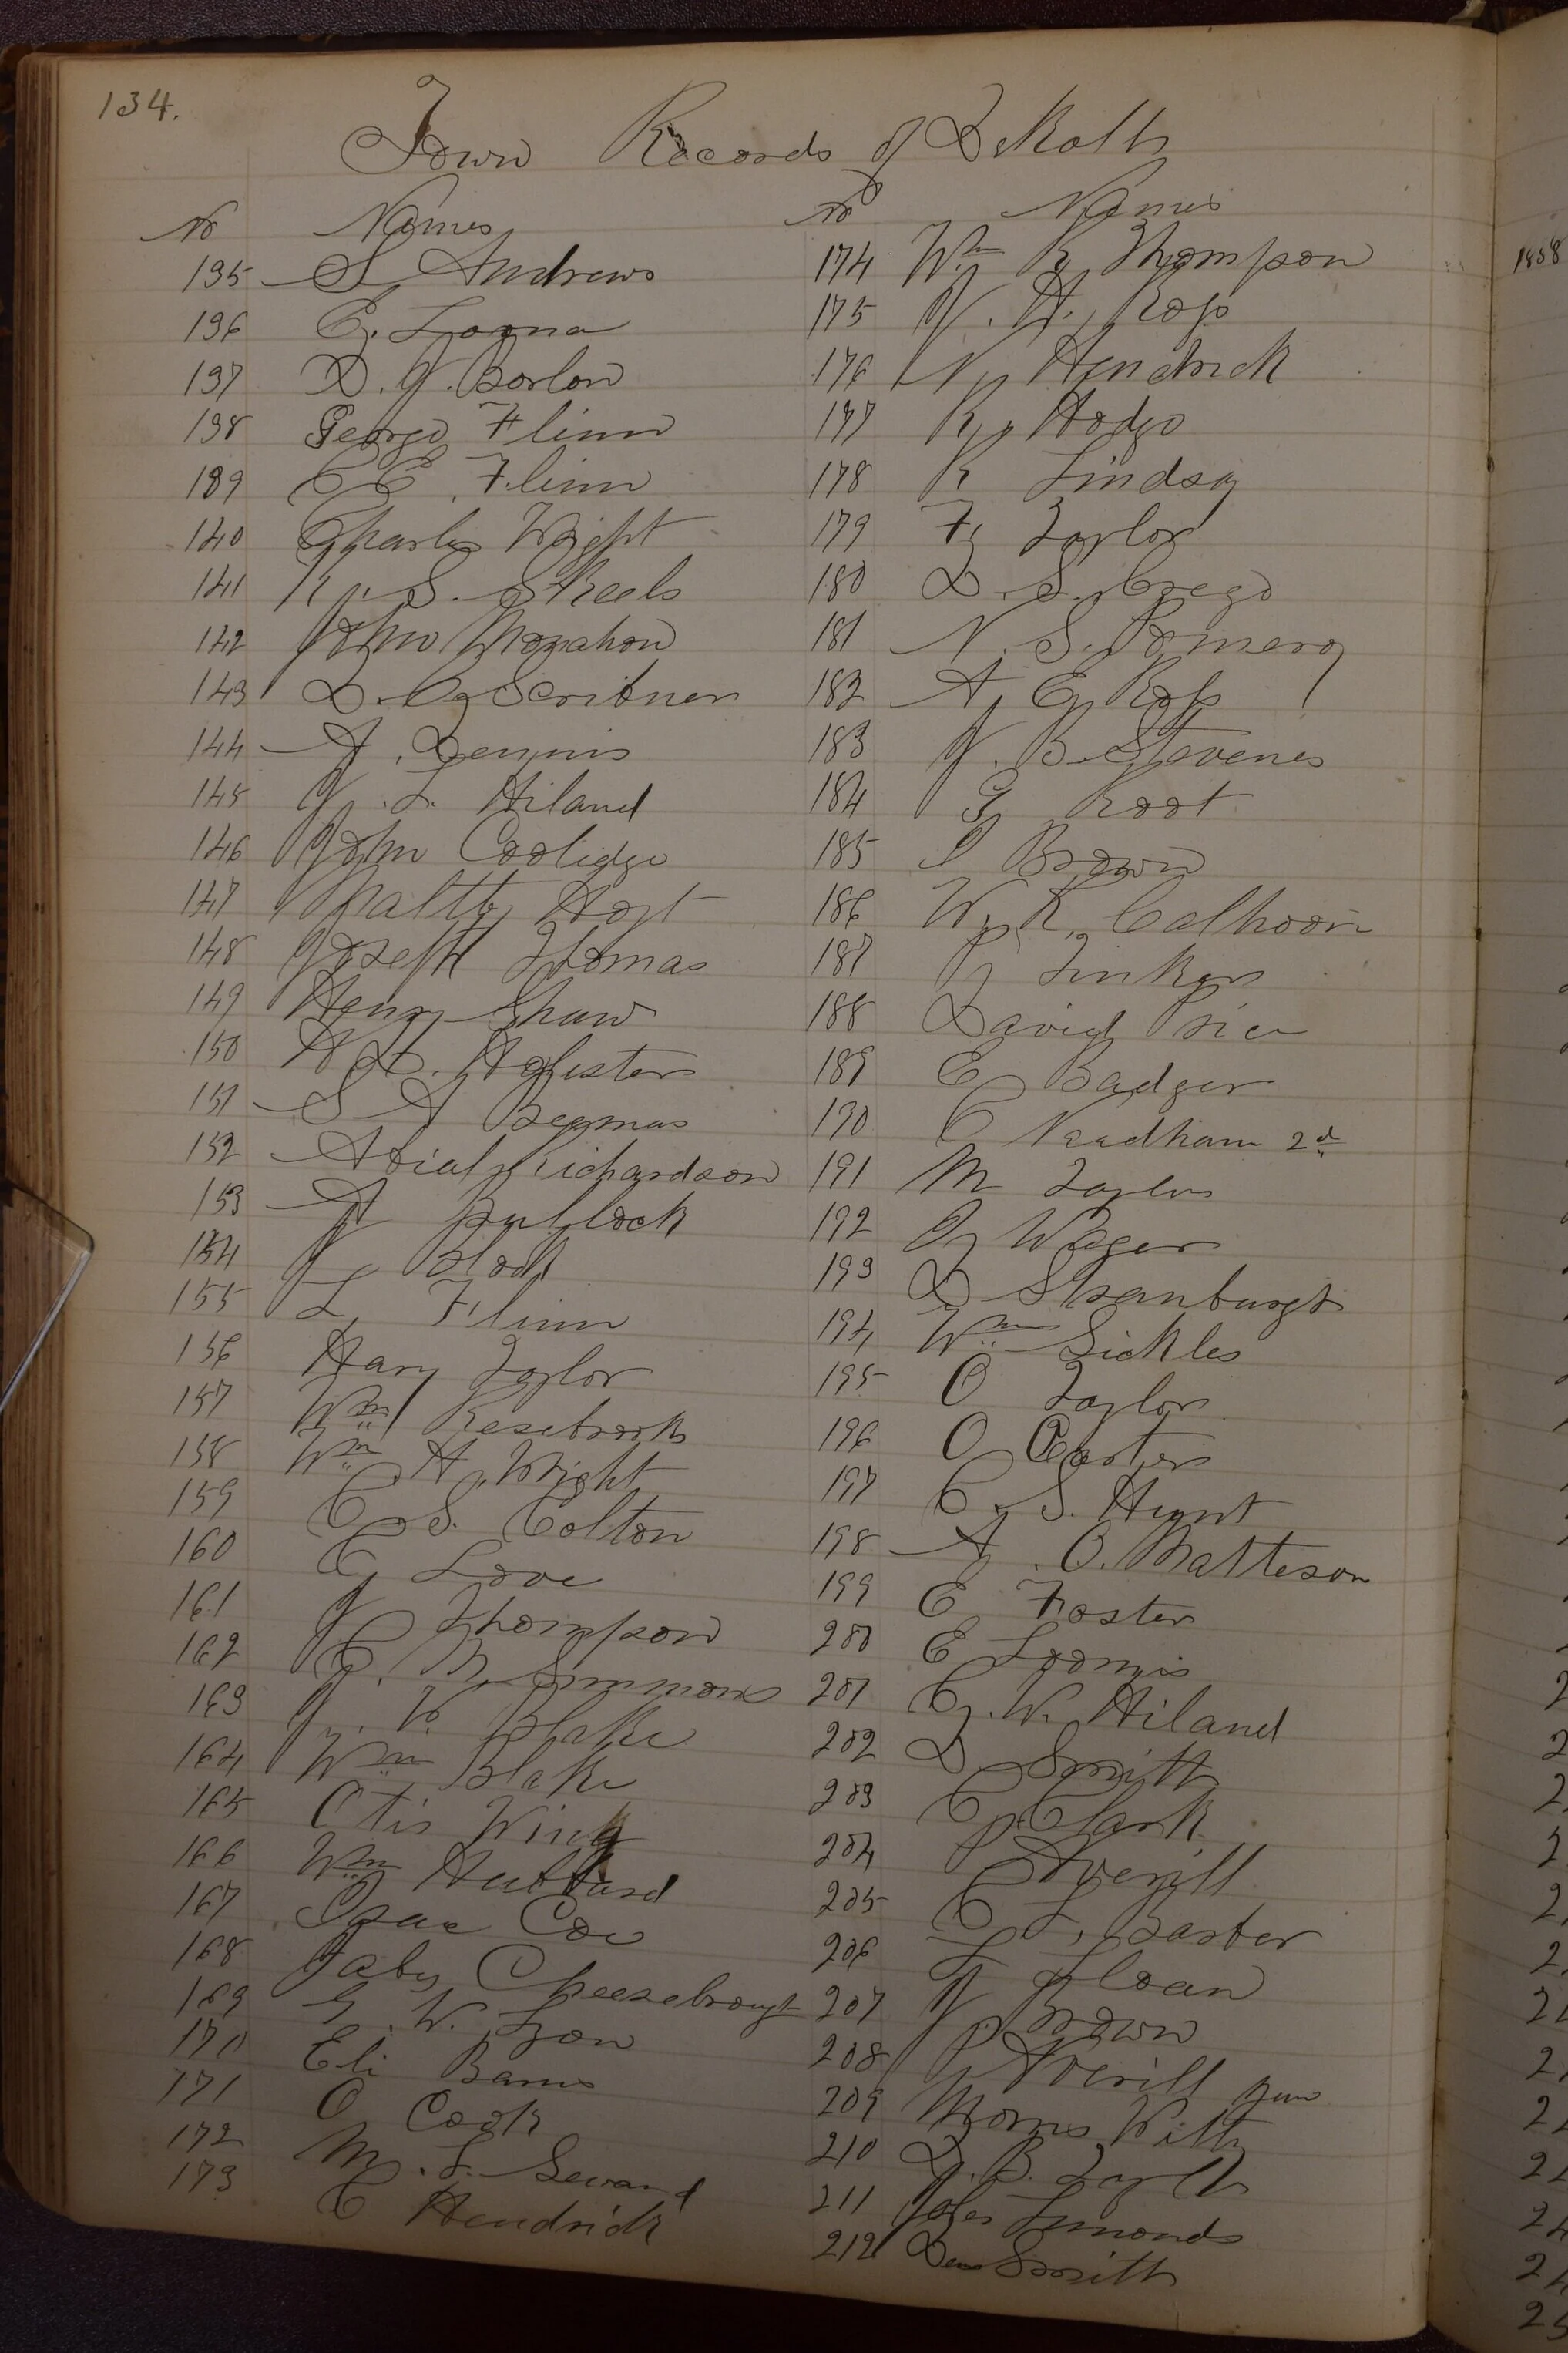 134.
Town Records of DeKalb
No Names
135 S Andrews
136 C. Loona
137 D. J. Barlow
138 George Flinn
139 C E. Flinn
140 Charles Wright
141 R. S. Skeels
142 John Monahon
143 D. C Scribner
144 A. Dennis
145 J. L. Hiland
146 John Coolidge
147 Maltby Hoyt
148 Joseph Thomas
149 Henry Shaw
150 H. Holister
151 S A Beamas
152 Abial Richardson
153 A Bullock
154 J Block
155 L Flinn
156 Hary Taylor
157 Wm Resebrook
158 Wm H. Wright
159 C S. Colton
160 C Love
161 J Thompson
162 C. M. Simmons
163 J. V. Blake
164 Wm Blake
165 Otis Wing
166 Wm Hubbard
167 Isaac Coe
168 Jabes Cheesebrough
169 G. W. Lyon
170 Eli Barns
171 O Cook
172 M. F. Seward
173 C Hendrick
No Names
174 Wm R Thompson
175 J. H. Ross
176 N Hendrick
177 R Hodge
178 R Lindsay
179 F Taylor
180 D. S. Crego
181 N. S. Pomeroy
182 A E Ross
183 J. B. Stevenes
184 G Root
185 I Brown
186 W. R. Calhoon
187 P Tinker
188 David Price
189 E Badger
190 C Needham 2d
191 M Taylor
192 J Wager
193 D Stranburgh
194 Wm Sickles
195 O Taylor
196 O Carter
197 C. S. Hunt
198 A. O. Matteson
199 E Foster
200 E Loomis
201 C. W. Hiland
202 D Smith
203 C Clark
204 P Averill
205 C L. Barber
206 F Sloan
207 J Brown
208 P Averill Jun
209 Morris Witby
210 D. B. Taylor
211 Timonds
212 Dan Smith
1858